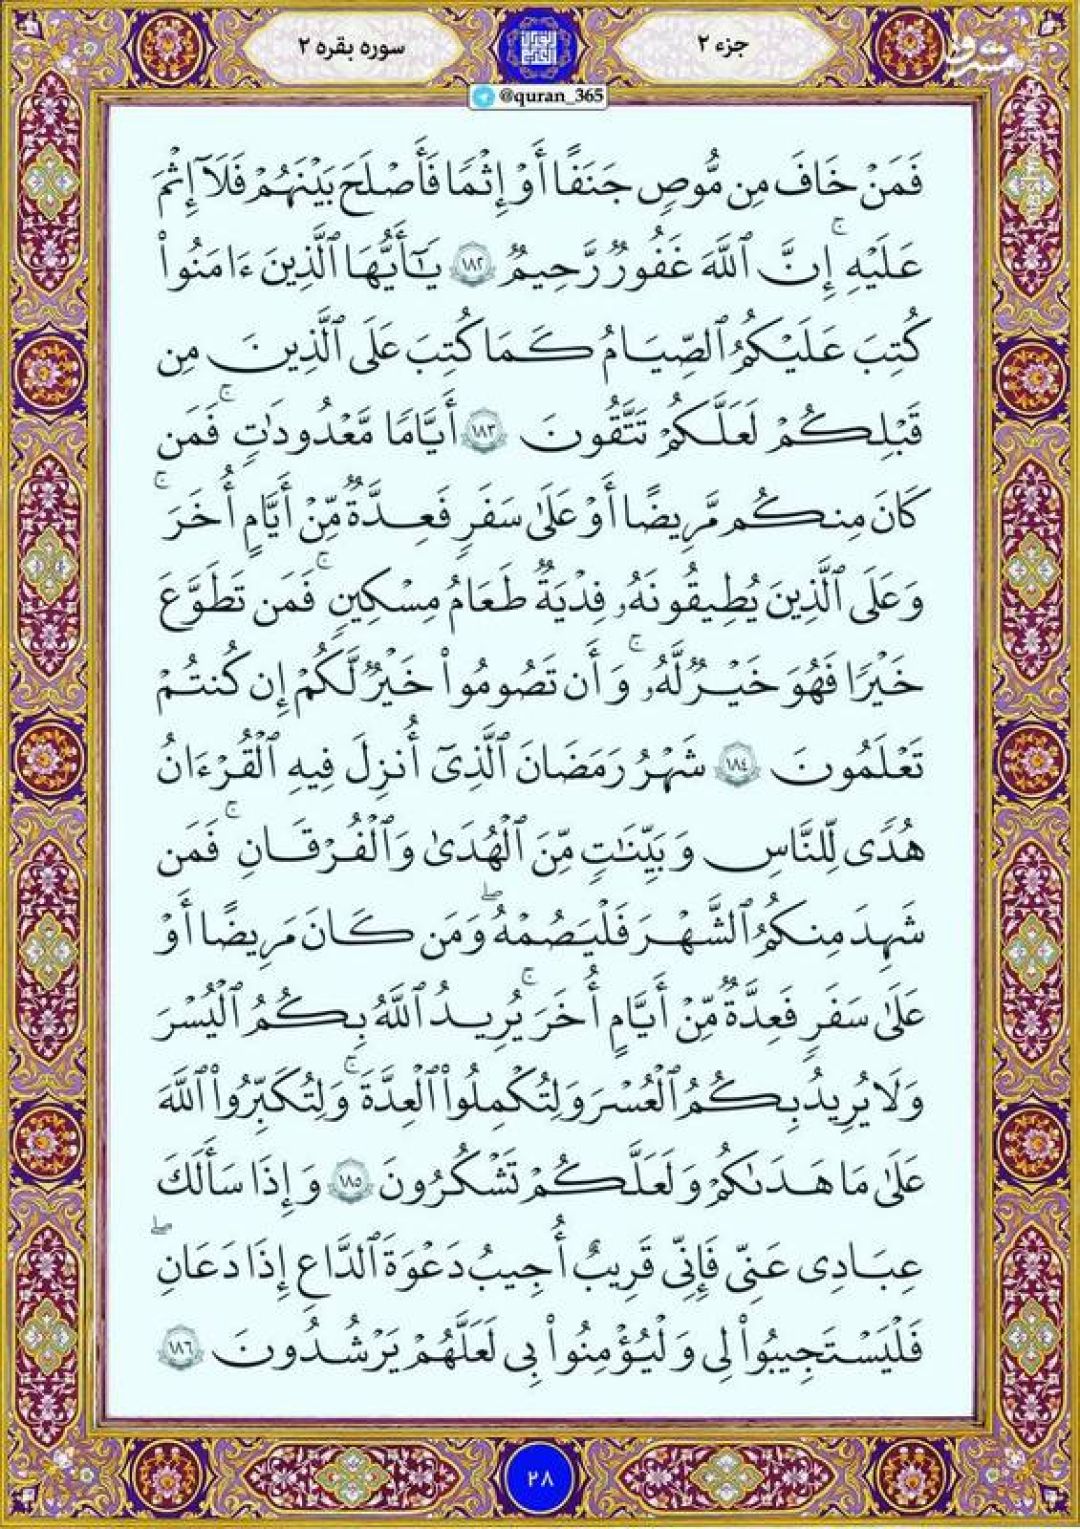 جزء ۲
سوره بقره ۲
@quran_365
فَمَنْ خَافَ مِن مُّوصٍ جَنَفًا أَوْ إِثْمًا فَأَصْلَحَ بَيْنَهُمْ فَلَآ إِثْمَ
عَلَيْهِ ۚ إِنَّ ٱللَّهَ غَفُورٌ رَّحِيمٌ ١٨٢ يَـٰٓأَيُّهَا ٱلَّذِينَ ءَامَنُوا۟
كُتِبَ عَلَيْكُمُ ٱلصِّيَامُ كَمَا كُتِبَ عَلَى ٱلَّذِينَ مِن
قَبْلِكُمْ لَعَلَّكُمْ تَتَّقُونَ ١٨٣ أَيَّامًا مَّعْدُودَٰتٍ ۚ فَمَن
كَانَ مِنكُم مَّرِيضًا أَوْ عَلَىٰ سَفَرٍ فَعِدَّةٌ مِّنْ أَيَّامٍ أُخَرَ ۚ
وَعَلَى ٱلَّذِينَ يُطِيقُونَهُۥ فِدْيَةٌ طَعَامُ مِسْكِينٍ ۖ فَمَن تَطَوَّعَ
خَيْرًا فَهُوَ خَيْرٌ لَّهُۥ ۚ وَأَن تَصُومُوا۟ خَيْرٌ لَّكُمْ إِن كُنتُمْ
تَعْلَمُونَ ١٨٤ شَهْرُ رَمَضَانَ ٱلَّذِىٓ أُنزِلَ فِيهِ ٱلْقُرْءَانُ
هُدًى لِّلنَّاسِ وَبَيِّنَـٰتٍ مِّنَ ٱلْهُدَىٰ وَٱلْفُرْقَانِ ۚ فَمَن
شَهِدَ مِنكُمُ ٱلشَّهْرَ فَلْيَصُمْهُ ۖ وَمَن كَانَ مَرِيضًا أَوْ
عَلَىٰ سَفَرٍ فَعِدَّةٌ مِّنْ أَيَّامٍ أُخَرَ ۚ يُرِيدُ ٱللَّهُ بِكُمُ ٱلْيُسْرَ
وَلَا يُرِيدُ بِكُمُ ٱلْعُسْرَ وَلِتُكْمِلُوا۟ ٱلْعِدَّةَ ۚ وَلِتُكَبِّرُوا۟ ٱللَّهَ
عَلَىٰ مَا هَدَىٰكُمْ وَلَعَلَّكُمْ تَشْكُرُونَ ١٨٥ وَإِذَا سَأَلَكَ
عِبَادِى عَنِّى فَإِنِّى قَرِيبٌ أُجِيبُ دَعْوَةَ ٱلدَّاعِ إِذَا دَعَانِ ۖ
فَلْيَسْتَجِيبُوا۟ لِى وَلْيُؤْمِنُوا۟ بِى لَعَلَّهُمْ يَرْشُدُونَ ١٨٦
۲۸